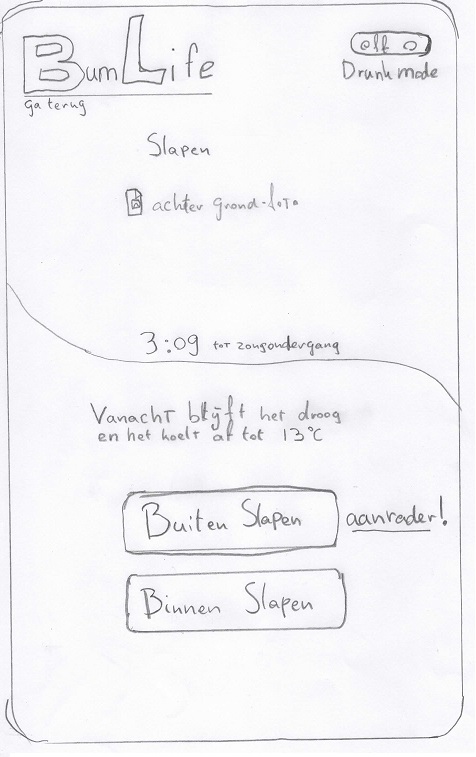 BumLife
off
Drunk mode
ga terug
Slapen
achter grond-foto
3:09 tot zonsondergang
Vanacht blijft het droog
en het koelt af tot 13°C
Buiten Slapen
aanrader!
Binnen Slapen